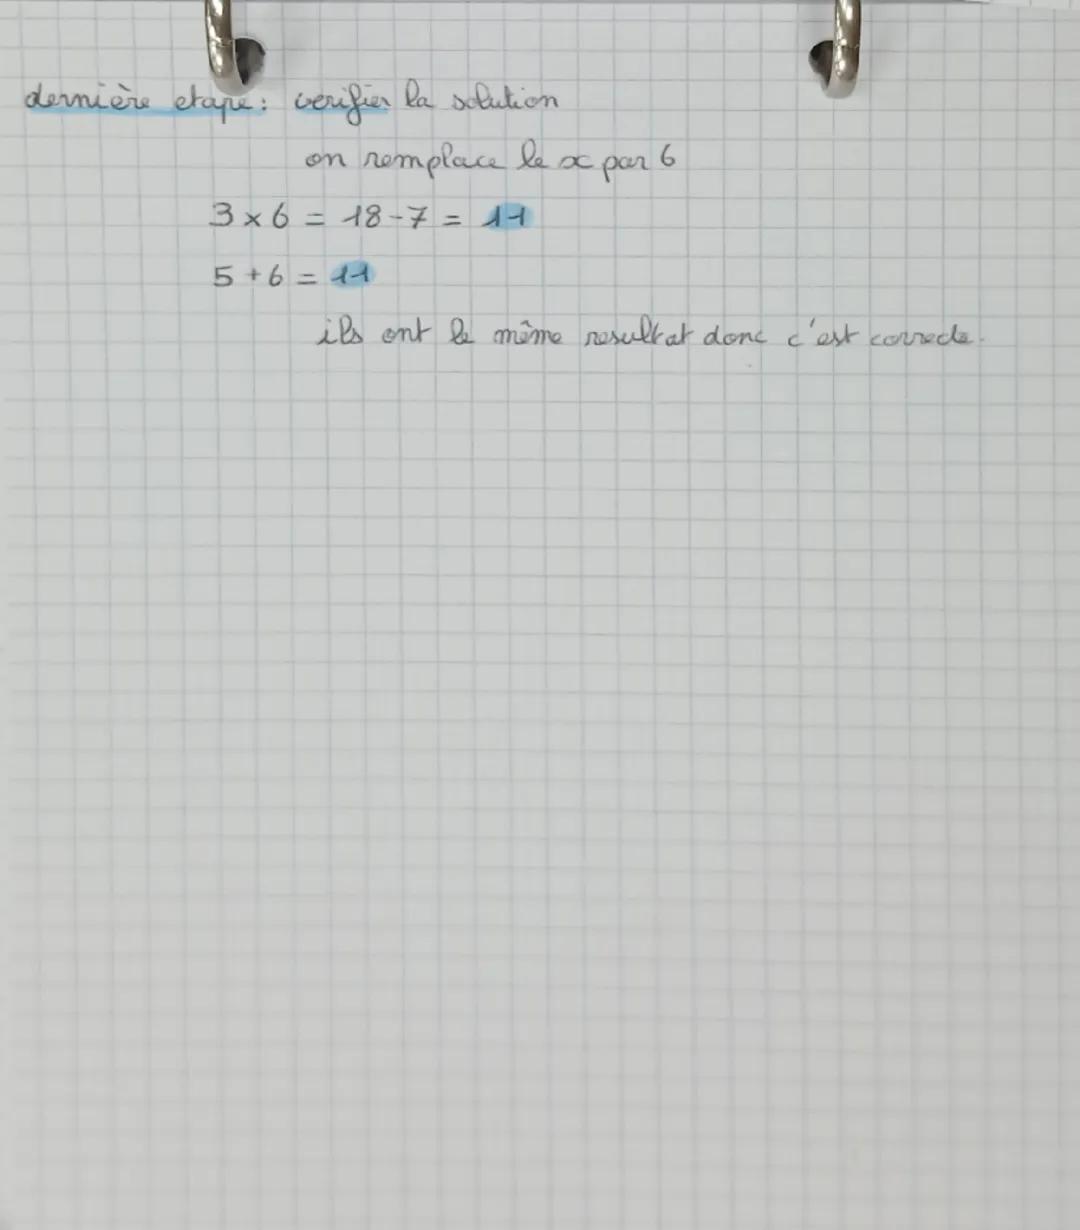 dernière etape: verifier la solution
on remplace le x par 6
3 x 6 = 18 - 7 = 11
5 + 6 = 11
ils ont le même resultat donc c'est correcte.